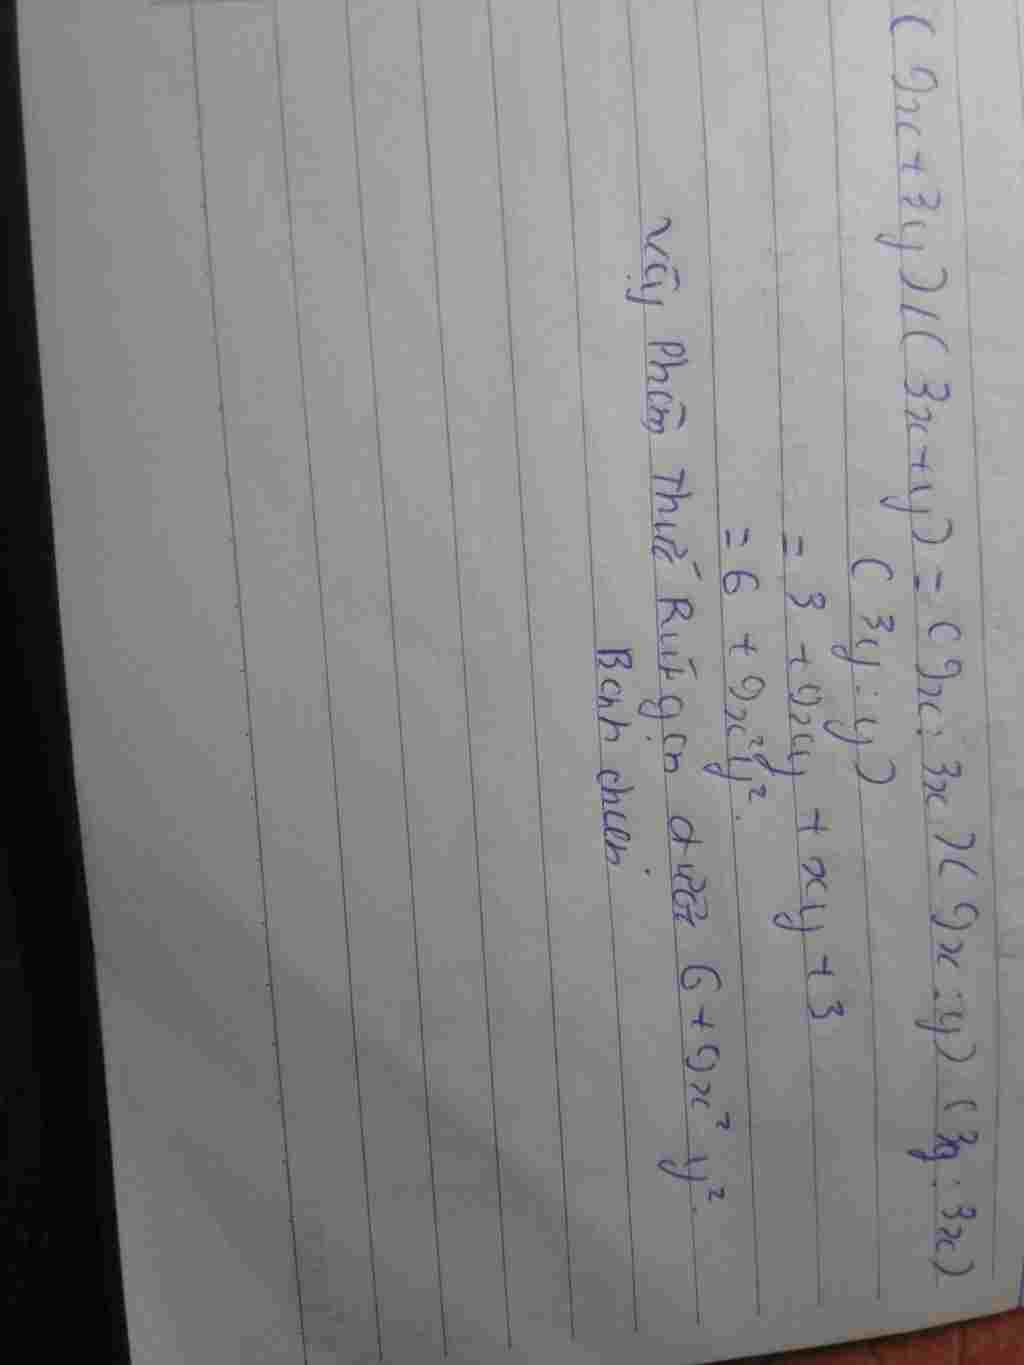 (9x + 3y) / (3x + y) = (9x : 3x) (9x : y) (3y : 3x)
(3y : y)
= 3 + 9xy + xy + 3
= 6 + 9x²y².
Vậy Phân Thức Rút gọn được 6 + 9x² y².